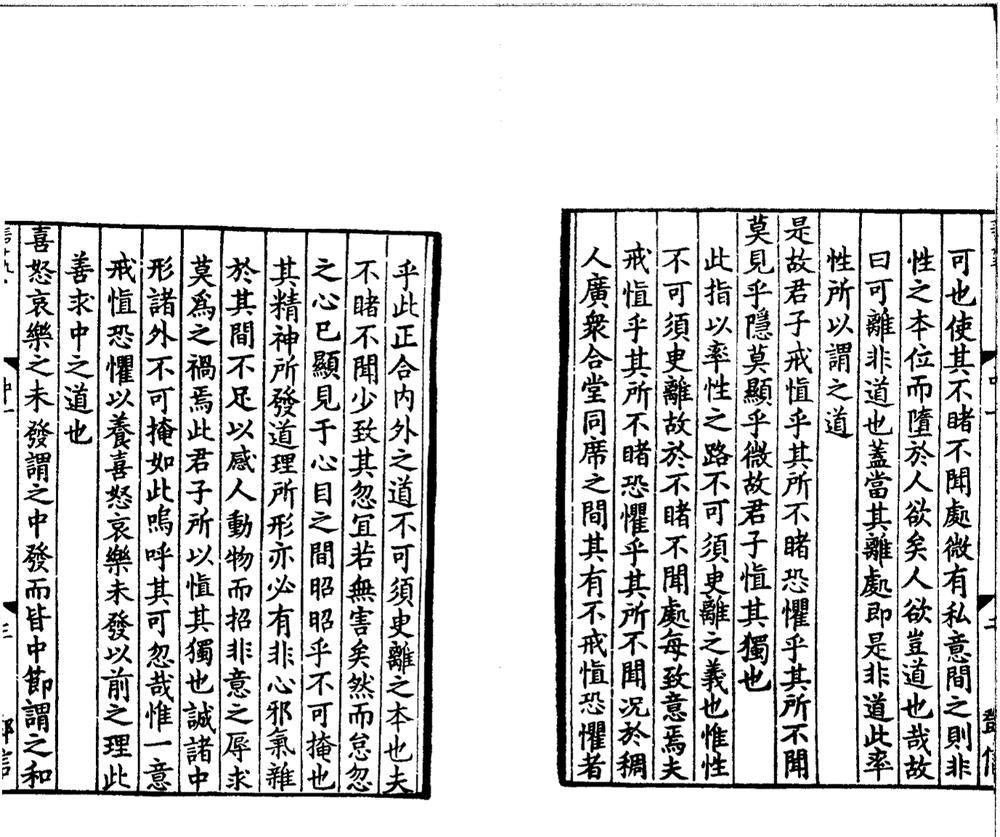 可也使其不睹不聞處微有私意間之則非
性之本位而墮於人欲矣人欲豈道也哉故
曰可離非道也蓋當其離處即是非道此率
性所以謂之道
是故君子戒慎乎其所不睹恐懼乎其所不聞
莫見乎隱莫顯乎微故君子慎其獨也
此指以率性之路不可須臾離之義也惟性
不可須臾離故於不睹不聞處每致意焉夫
戒慎乎其所不睹恐懼乎其所不聞况於稠
人廣衆合堂同席之間其有不戒慎恐懼者
乎此正合内外之道不可須臾離之本也夫
不睹不聞少致其忽冝若無害矣然而怠忽
之心已顯見于心目之間昭昭乎不可掩也
其精神所發道理所形亦必有非心邪氣雜
於其間不足以感人動物而招非意之辱求
莫爲之禍焉此君子所以慎其獨也誠諸中
形諸外不可掩如此嗚呼其可忽哉惟一意
戒慎恐懼以養喜怒哀樂未發以前之理此
善求中之道也
喜怒哀樂之未發謂之中發而皆中節謂之和
三